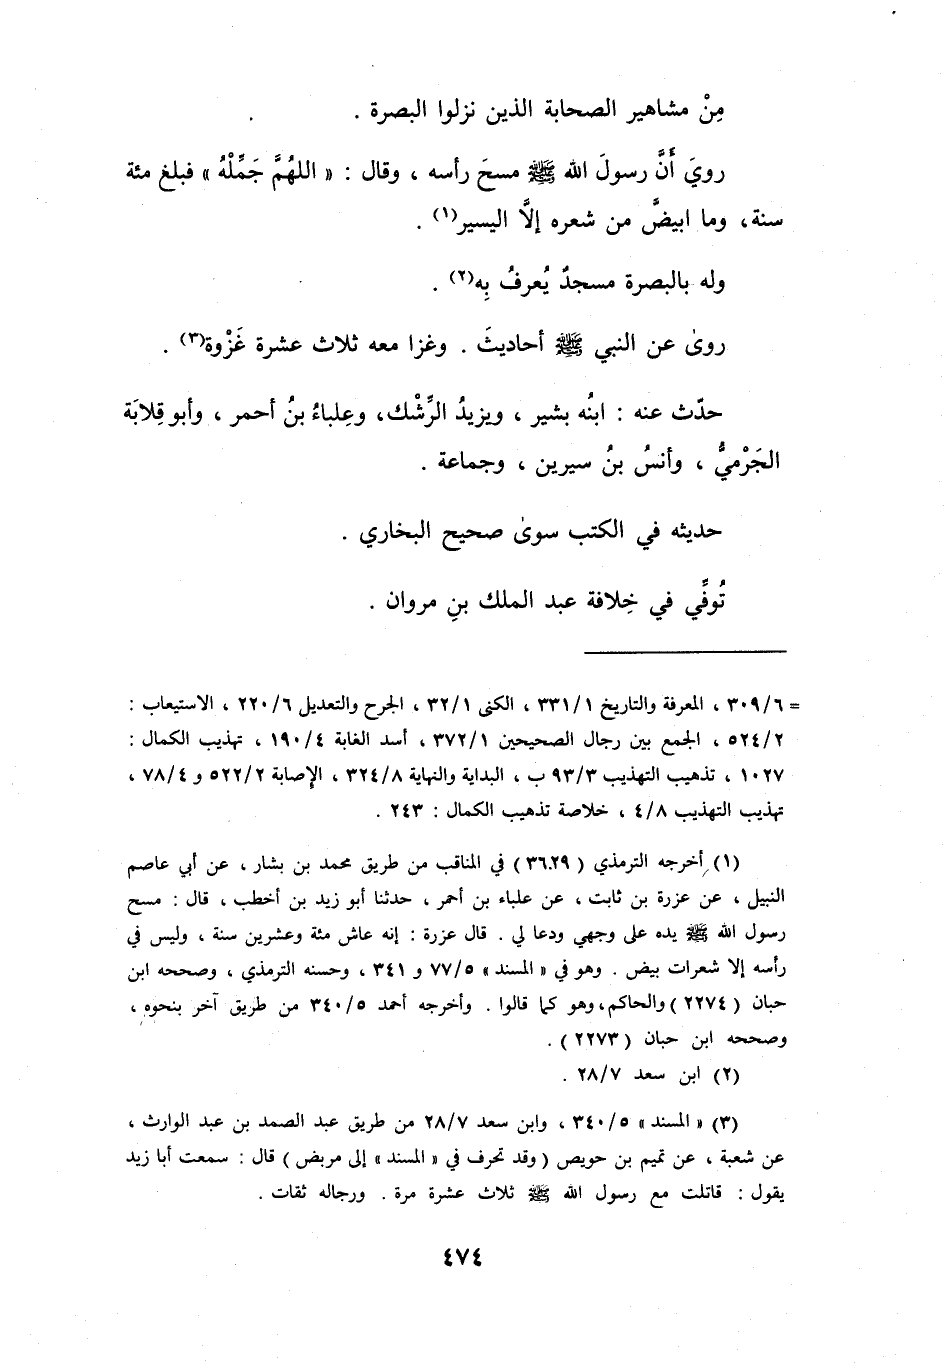 مِنْ مشاهير الصحابة الذين نزلوا البصرة .
رويَ أَنَّ رسولَ الله ﷺ مسحَ رأسه ، وقال : « اللهُمَّ جَمِّلْهُ » فبلغ مئة
سنة، وما ابيضَّ من شعره إلَّا اليسير(١) .
وله بالبصرة مسجدٌ يُعرفُ بِه(٢) .
روىٰ عن النبي ﷺ أحاديثَ . وغزا معه ثلاث عشرة غَزْوة(٣) .
حدّث عنه : ابنُه بشير ، ويزيدُ الرِّشْك، وعِلباءُ بنُ أحمر ، وأبو قِلابَة
الجَرْميُّ ، وأنسُ بنُ سيرين ، وجماعة .
حديثه في الكتب سوىٰ صحيح البخاري .
تُوفِّي في خِلافة عبد الملك بنِ مروان .
= ٣٠٩/٦ ، المعرفة والتاريخ ٣٣١/١ ، الكنى ٣٢/١ ، الجرح والتعديل ٢٢٠/٦ ، الاستيعاب :
٥٢٤/٢ ، الجمع بين رجال الصحيحين ٣٧٢/١ ، أسد الغابة ١٩٠/٤ ، تهذيب الكمال :
١٠٢٧ ، تذهيب التهذيب ٩٣/٣ ب ، البداية والنهاية ٣٢٤/٨ ، الإصابة ٥٢٢/٢ و ٧٨/٤ ،
تهذيب التهذيب ٤/٨ ، خلاصة تذهيب الكمال : ٢٤٣ .
(١) أخرجه الترمذي ( ٣٦٢٩ ) في المناقب من طريق محمد بن بشار ، عن أبي عاصم
النبيل ، عن عزرة بن ثابت ، عن علباء بن أحمر ، حدثنا أبو زيد بن أخطب ، قال : مسح
رسول الله ﷺ يده على وجهي ودعا لي . قال عزرة : إنه عاش مئة وعشرين سنة ، وليس في
رأسه إلا شعرات بيض . وهو في « المسند » ٧٧/٥ و ٣٤١ ، وحسنه الترمذي ، وصححه ابن
حبان ( ٢٢٧٤ ) والحاكم، وهو كما قالوا . وأخرجه أحمد ٣٤٠/٥ من طريق آخر بنحوه ،
وصححه ابن حبان ( ٢٢٧٣ ) .
(٢) ابن سعد ٢٨/٧ .
(٣) « المسند » ٣٤٠/٥ ، وابن سعد ٢٨/٧ من طريق عبد الصمد بن عبد الوارث ،
عن شعبة ، عن تميم بن حويص ( وقد تحرف في « المسند » إلى مربض ) قال : سمعت أبا زيد
يقول : قاتلت مع رسول الله ﷺ ثلاث عشرة مرة . ورجاله ثقات .
٤٧٤